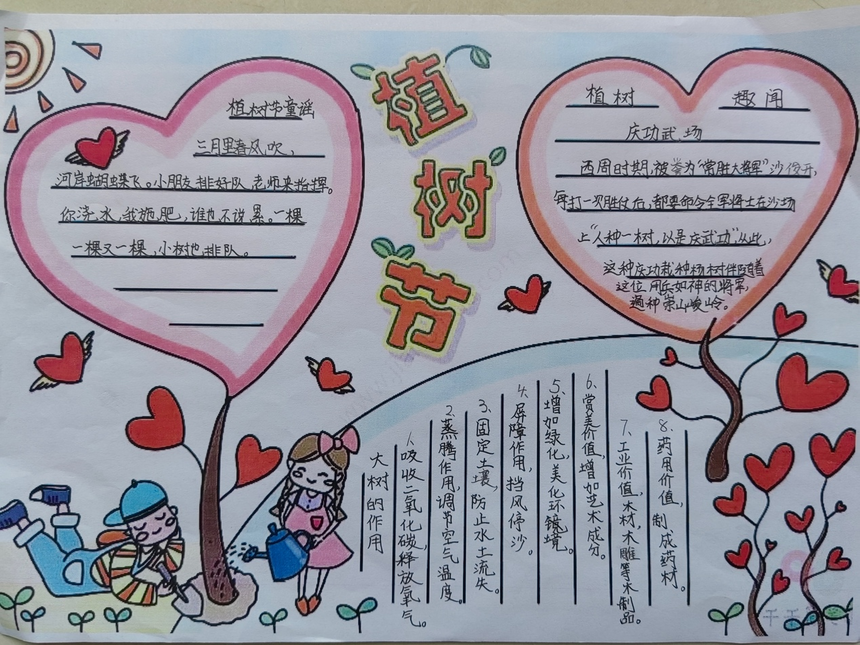 植树节
植树节童谣
三月里春风吹、
河岸蝴蝶飞。小朋友排好队,老师来指挥。
你浇水,我施肥,谁也不说累。一棵
一棵又一棵,小树也排队。
植树 趣闻
庆功武场
西周时期,被誉为“常胜大将军”沙俊开,
每打一次胜仗后,都要命令全军将士在沙场
上“人种一树,以是庆武功”从此,
这种庆功栽种杨树伴随着
这位用兵如神的将军,
遍种崇山峻岭。
大树的作用
1、吸收二氧化碳,释放氧气。
2、蒸腾作用,调节空气温度。
3、固定土壤,防止水土流失。
4、屏障作用,挡风停沙。
5、增加绿化,美化环境。
6、赏美价值,增加艺术成分。
7、工业价值,木材,木雕等木制品。
8、药用价值,制成药材。